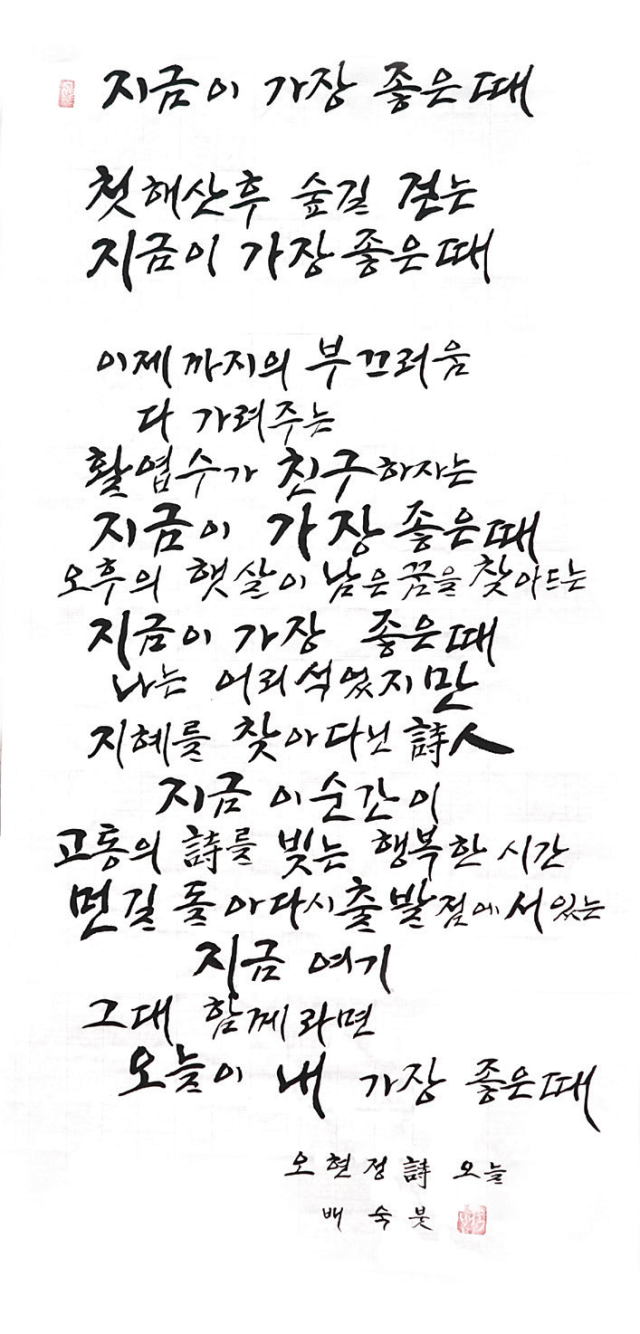 지금이 가장 좋은때
첫해산후 숲길 걷는
지금이 가장 좋은때
이제까지의 부끄러움
다 가려주는
활엽수가 친구하자는
지금이 가장 좋은때
오후의 햇살이 남은 꿈을 찾아드는
지금이 가장 좋은때
나는 어리석었지만
지혜를 찾아다닌 詩人
지금 이순간이
고통의 詩를 빚는 행복한 시간
먼길 돌아다시 출발점에 서있는
지금 여기
그대 함께라면
오늘이 내 가장 좋은때
오현정 詩 오늘
배숙 붓